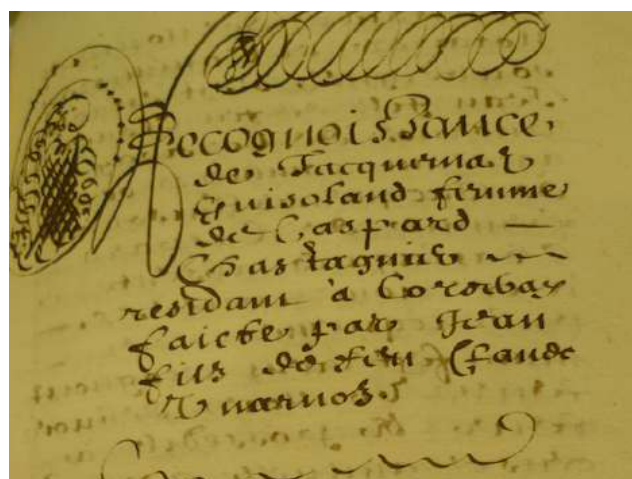 Recognoissance
de Jacquemaz
Guisoland femme
de Gaspard —
Chastagnier
residant à Corsvax
faicte par Jean
filz de feu Claude